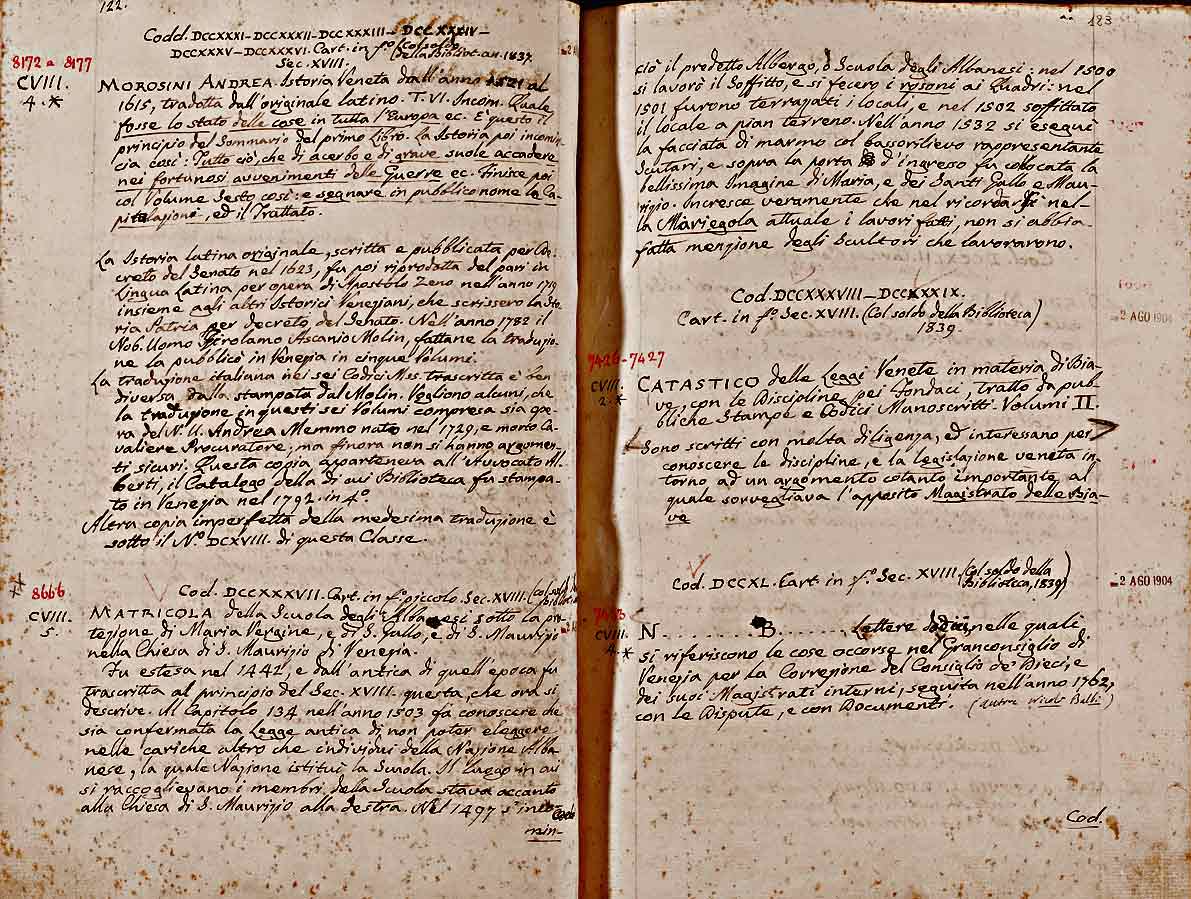 122.
Codd. DCCXXXI-DCCXXXII-DCCXXXIII-DCCXXXIV-
DCCXXXV-DCCXXXVI. Cart. in fº. (Col soldo
Sec. XVIII. della Bibliot. an. 1837.
8172 a 8177
CVIII.
4.*
MOROSINI ANDREA. Istoria Veneta dall'anno 1521 al
1615, tradotta dall'originale latino. T. VI. Incom. Quale
fosse lo stato delle cose in tutta l'Europa ec. È questo il
principio del Sommario del primo Libro. La Istoria poi incomin-
cia così: Tutto ciò, che di acerbo e di grave suole accadere
nei fortunosi avvenimenti delle Guerre ec. Finisce poi
col Volume Sesto così: e segnare in pubblico nome la Ca-
pitolazione, ed il Trattato.
La Istoria latina originale, scritta e pubblicata per De-
creto del Senato nel 1623, fu poi riprodotta del pari in
Lingua Latina per opera di Apostolo Zeno nell'anno 1719
insieme agli altri Istorici Veneziani, che scrissero la Sto-
ria Patria per decreto del Senato. Nell'anno 1782 il
Nob. Uomo Girolamo Ascanio Molin, fattane la traduzio-
ne la pubblicò in Venezia in cinque Volumi.
La traduzione italiana nei sei Codici Mss. trascritta è ben
diversa dalla stampata dal Molin. Vogliono alcuni, che
la traduzione in questi sei Volumi compresa sia ope-
ra del N. U. Andrea Memmo nato nel 1729, e morto Ca-
valiere Procuratore, ma finora non si hanno argomen-
ti sicuri. Questa copia apparteneva all'Avvocato Al-
berti, il Catalogo della di cui Biblioteca fu stampa-
to in Venezia nel 1792. in 4º
Altra copia imperfetta della medesima traduzione è
sotto il Nº. DCXVIII. di questa Classe.
8666
CVIII.
5.
Cod. DCCXXXVII. Cart. in fº. piccolo. Sec. XVIII. (Col soldo
MATRICOLA della Scuola degli Albanesi sotto la pro-
tezione di Maria Vergine, e di S. Gallo, e di S. Maurizio
nella Chiesa di S. Maurizio di Venezia.
Fu estesa nel 1442, e dall'antica di quell'epoca fu
trascritta al principio del Sec. XVIII. questa, che ora si
descrive. Al Capitolo 134 nell'anno 1503 fa conoscere che
sia confermata la Legge antica di non poter eleggere
nelle cariche altro che individui della Nazione Alba-
nese, la quale Nazione istituì la Scuola. Il luogo in cui
si raccoglievano i membri della Scuola stava accanto
alla Chiesa di S. Maurizio alla destra. Nel 1497 s'inco-
min-
123
ciò il predetto Albergo, o Scuola degli Albanesi: nel 1500
si lavorò il Soffitto, e si fecero i rosoni ai Quadri: nel
1501 furono terrazzati i locali, e nel 1502 soffittato
il locale a pian terreno. Nell'anno 1532 si eseguì
la facciata di marmo col bassorilievo rappresentante
Scutari, e sopra la porta d'ingresso fu collocata la
bellissima Imagine di Maria, e dei Santi Gallo e Mau-
rizio. Incresce veramente che nel ricordarsi nel-
la Mariegola attuale i lavori fatti, non si abbia
fatta menzione degli Scultori che lavorarono.
Cod. DCCXXXVIII-DCCXXXIX.
Cart. in fº. Sec. XVIII. (Col soldo della Biblioteca)
1839.
2 AGO 1904
7426-7427
CVIII.
2.*
CATASTICO delle Leggi Venete in materia di Bia-
ve, con le Discipline pei Fondaci, tratto da pub-
bliche Stampe e Codici Manoscritti. Volumi II.
Sono scritti con molta diligenza, ed interessano per
conoscere le discipline, e la legislazione veneta in-
torno ad un argomento cotanto importante, al
quale sorvegliava l'apposito Magistrato delle Bia-
ve
Cod. DCCXL. Cart. in fº. Sec. XVIII. (Col soldo della
Biblioteca, 1839)
2 AGO 1904
CVIII.
4.*
N. . . . . . . . B. . . . . . . Lettere dodici, nelle quali
si riferiscono le cose occorse nel Granconsiglio di
Venezia per la Correzione del Consiglio de' Dieci, e
dei suoi Magistrati interni, seguita nell'anno 1762,
con le Dispute, e con Documenti.
Cod.